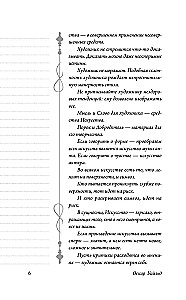 ства — в совершенном применении несовер-
шенных средств.
Художник не стремится что-то дока-
зывать. Доказать можно даже неоспоримые
истины.
Художник не моралист. Подобная склон-
ность художника рождает непростительную
манерность стиля.
Не приписывайте художнику нездо-
ровых тенденций: ему дозволено изображать
все.
Мысль и Слово для художника — сред-
ства Искусства.
Порок и Добродетель — материал для
его творчества.
Если говорить о форме —
искусства является искусство музыканта.
Если говорить о чувстве — искусство ак-
тера.
Во всяком искусстве есть то, что лежит
на поверхности, и символ.
Кто пытается проникнуть глубже
поверхности, тот идет на
риск.
И кто раскрывает символ, идет на
риск.
В сущности, Искусство — зеркало,
отражающее того, кто в него смотрится, а
вовсе не жизнь.
Если произведение искусства вызывает
споры — значит, в нем есть нечто новое,
сложное и значительное.
Пусть критики расходятся во мнени-
ях — художник остается верен себе.
6
Оскар Уайльд